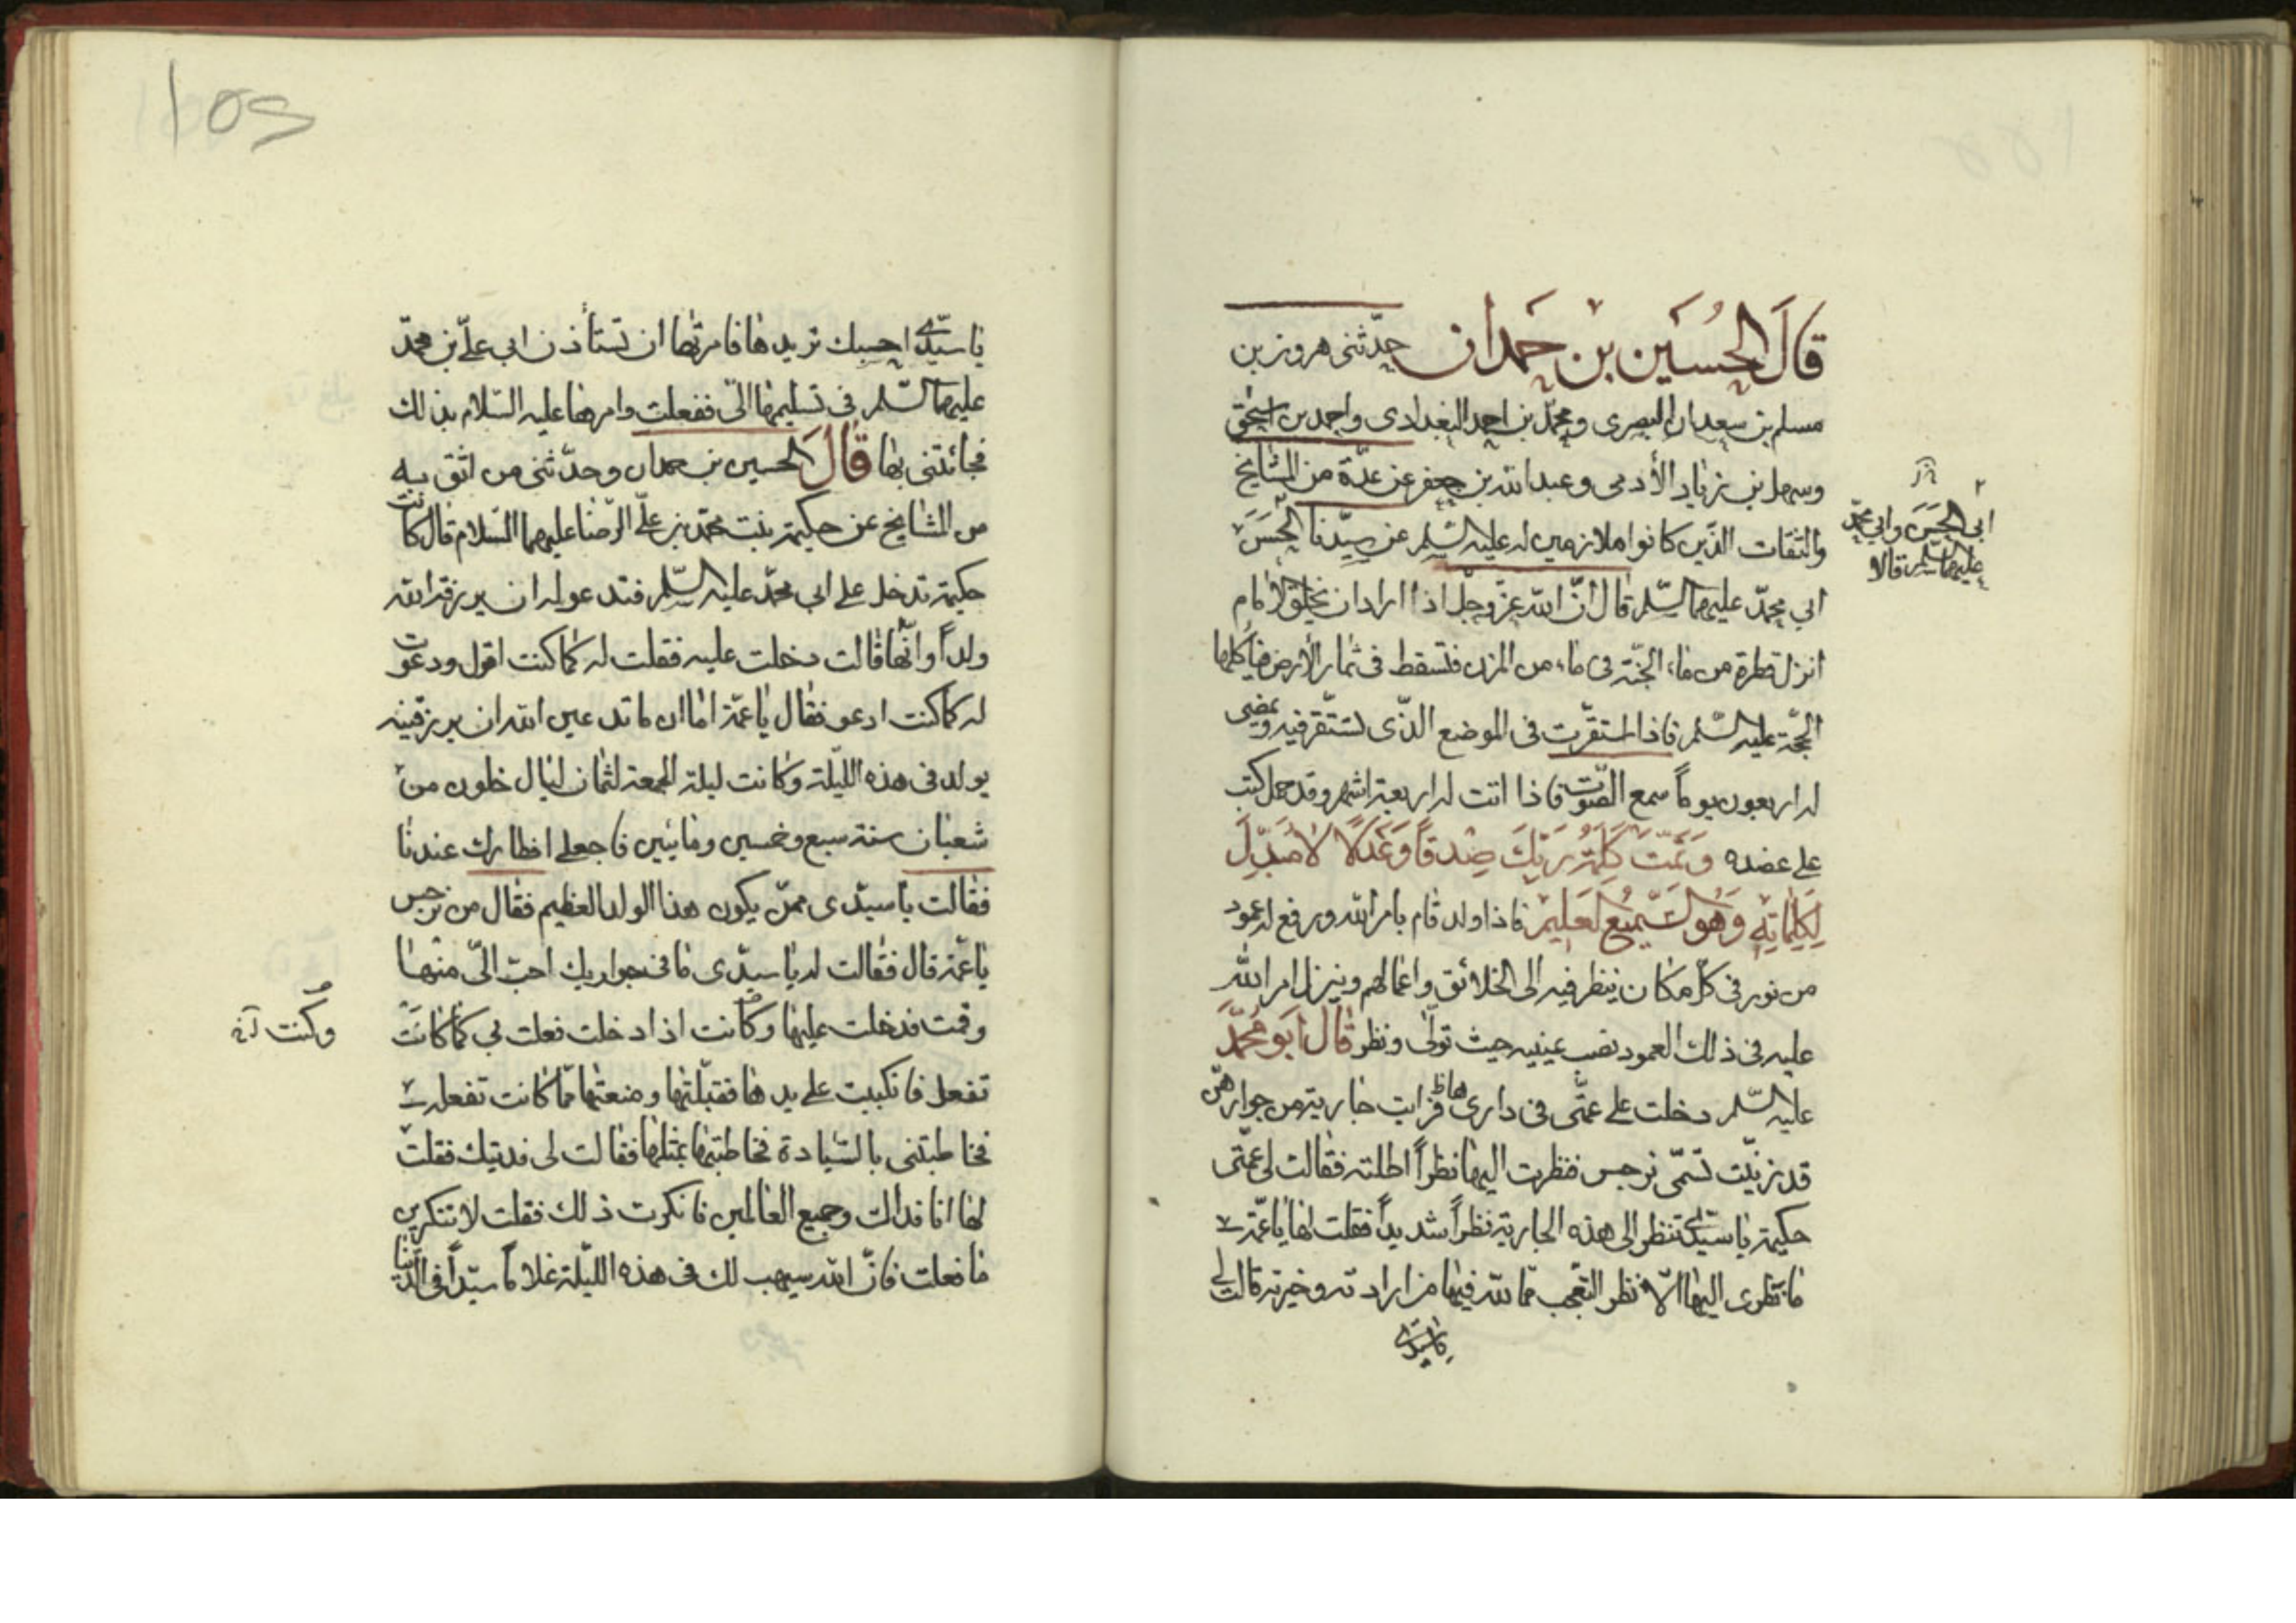 قَالَ الحُسَيْن بْن حَمدَان حدّثنى هرون بن
مسلم بن سعدان البصرى ومحمّد بن احمد البغدادى واحمد بن اسحٰق
وسهل بن زياد الأدمى وعبد الله بن جعفر عن عدّة من المشايخ
والثقات الذّين كانوا ملازمين له عليه السّلم عن سيّدنا الحَسَن
ابى الحَسَن وابى محمّد
عليهما السّلم قالا
ابى محمّد عليهما السّلم قال انّ الله عزّ وجلّ اذا اراد ان يخلق الامام
انزل قطرة من ماء الجنّة فى ماء من المزن فتسقط فى ثمار الأرض فيأكلها
الحجّة عليه السّلم فاذا استقرّت فى الموضع الذّى تستقرّ فيه ويمضى
له اربعون يوماً سمع الصّوت فاذا اتت له اربعة اشهر وقد حمل كتب
على عضده وَتَمَّتْ كَلِمَةُ رَبِّكَ صِدْقاً وَعَدْلاً لاٰ مُبَدِّلَ
لِكَلِمٰاتِهِ وَهُوَ السَّمِيْعُ الْعَلِيْمُ فاذا ولد قام بامر الله ورفع له عمود
من نور فى كلّ مكان ينظر فيه الى الخلائق واعمالهم وينزل امر الله
عليه فى ذلك العمود نصب عينيه حيث تولّى ونظر قَالَ اَبُو مُحَمَّد
عليه السّلم دخلت على عمّتى فى دارها فرايت جارية من جوارهنّ
قد زيّنت تسمّى نرجس فنظرت اليها نظراً اطلته فقالت لى عمّتى
حكيمة يا سيّدى تنظر الى هذه الجارية نظراً شديداً فقلت لها يا عمّة
ما نظرى اليها الاّ نظر التّعجب ممّا لله فيها من ارادته وخيرته قالت لى
يا سيّدى
يا سيّدى احسبك تريدها فامرتها ان تستأذن ابى علىّ بن محمّد
عليهما السّلم فى تسليمها الىّ ففعلت وامرها عليه السّلام بذلك
فجائتنى بها قَالَ الحسين بن حمدان وحدّثنى من اثق به
من المشايخ عن حكيمة بنت محمّد بن علىّ الرّضا عليهما السّلام قال كانت
حكيمة تدخل على ابى محمّد عليه السّلم فتدعو له ان يرزقه الله
ولداً وانّها قالت دخلت عليه فقلت له كما كنت اقول ودعوت
له كما كنت ادعو فقال يا عمّة اما ان ما تدعين الله ان يرزقنيه
يولد فى هذه اللّيلة وكانت ليلة الجمعة لثمان ليال خلون من
شعبان سنة سبع وخمسين ومايئين فاجعلى افطارك عندنا
فقالت يا سيّدى ممّن يكون هذا الولد العظيم فقال من نرجس
يا عمّة قال فقالت له يا سيّدى ما فى جواريك احبّ الىّ منها
وقمت فدخلت عليها وكانت اذا دخلت فعلت بى كما كانت
وكنت
تفعل فانكببت على يدها فقبّلتها ومنعتها ممّا كانت تفعله
فخاطبتنى بالسّيادة فخاطبتها بمثلها فقالت لى فديتك فقلت
لها انا فداك وجميع العالمين فانكرت ذلك فقلت لا تنكرين
ما فعلت فانّ الله سيهب لك فى هذه اللّيلة غلاماً سيّداً فى الدّنيا